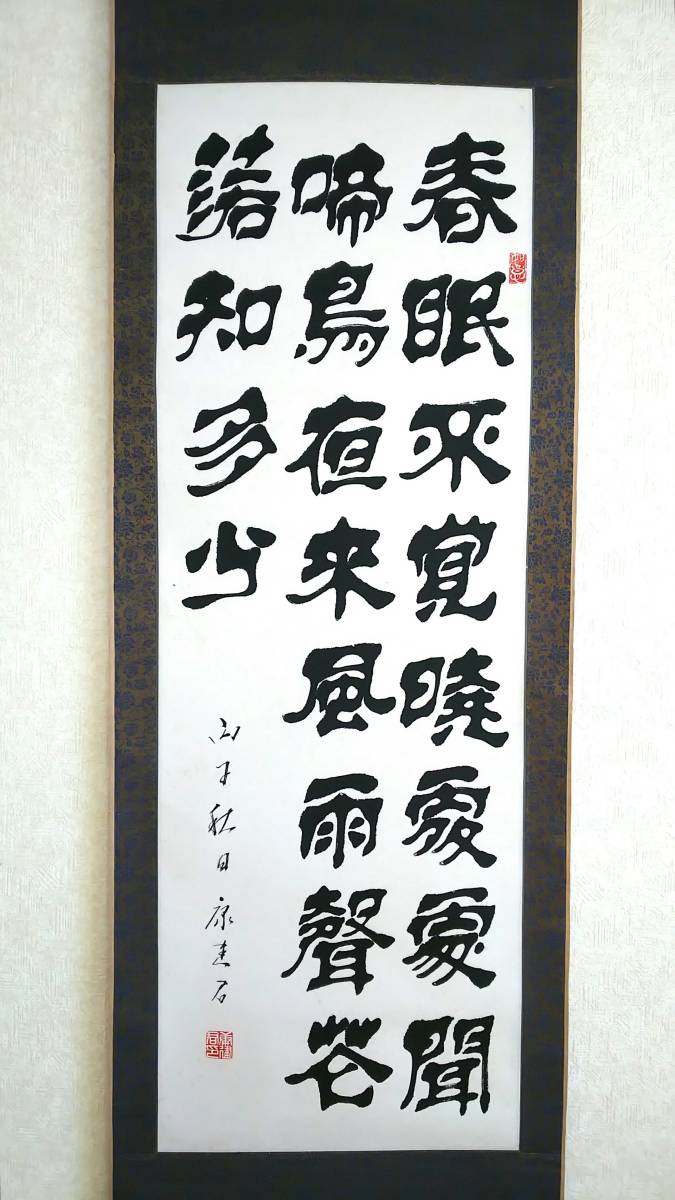 春眠不覺曉處處聞
啼鳥夜來風雨聲花
落知多少
丙子秋日康建石